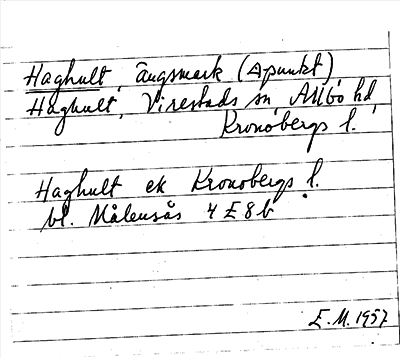 Haghult, ängsmark (△punkt)
Haghult, Virestads sn, Allbo hd,
Kronobergs l.
Haghult ek Kronobergs l.
bl. Målensås 4 E 8 b
E.M. 1957